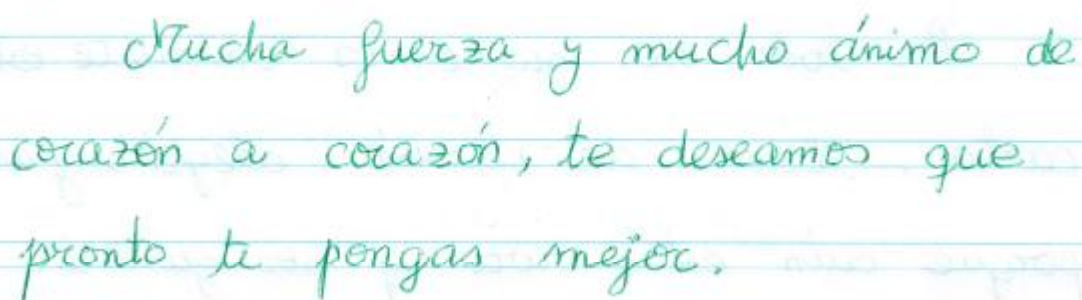 Mucha fuerza y mucho ánimo de
corazón a corazón, te deseamos que
pronto te pongas mejor.